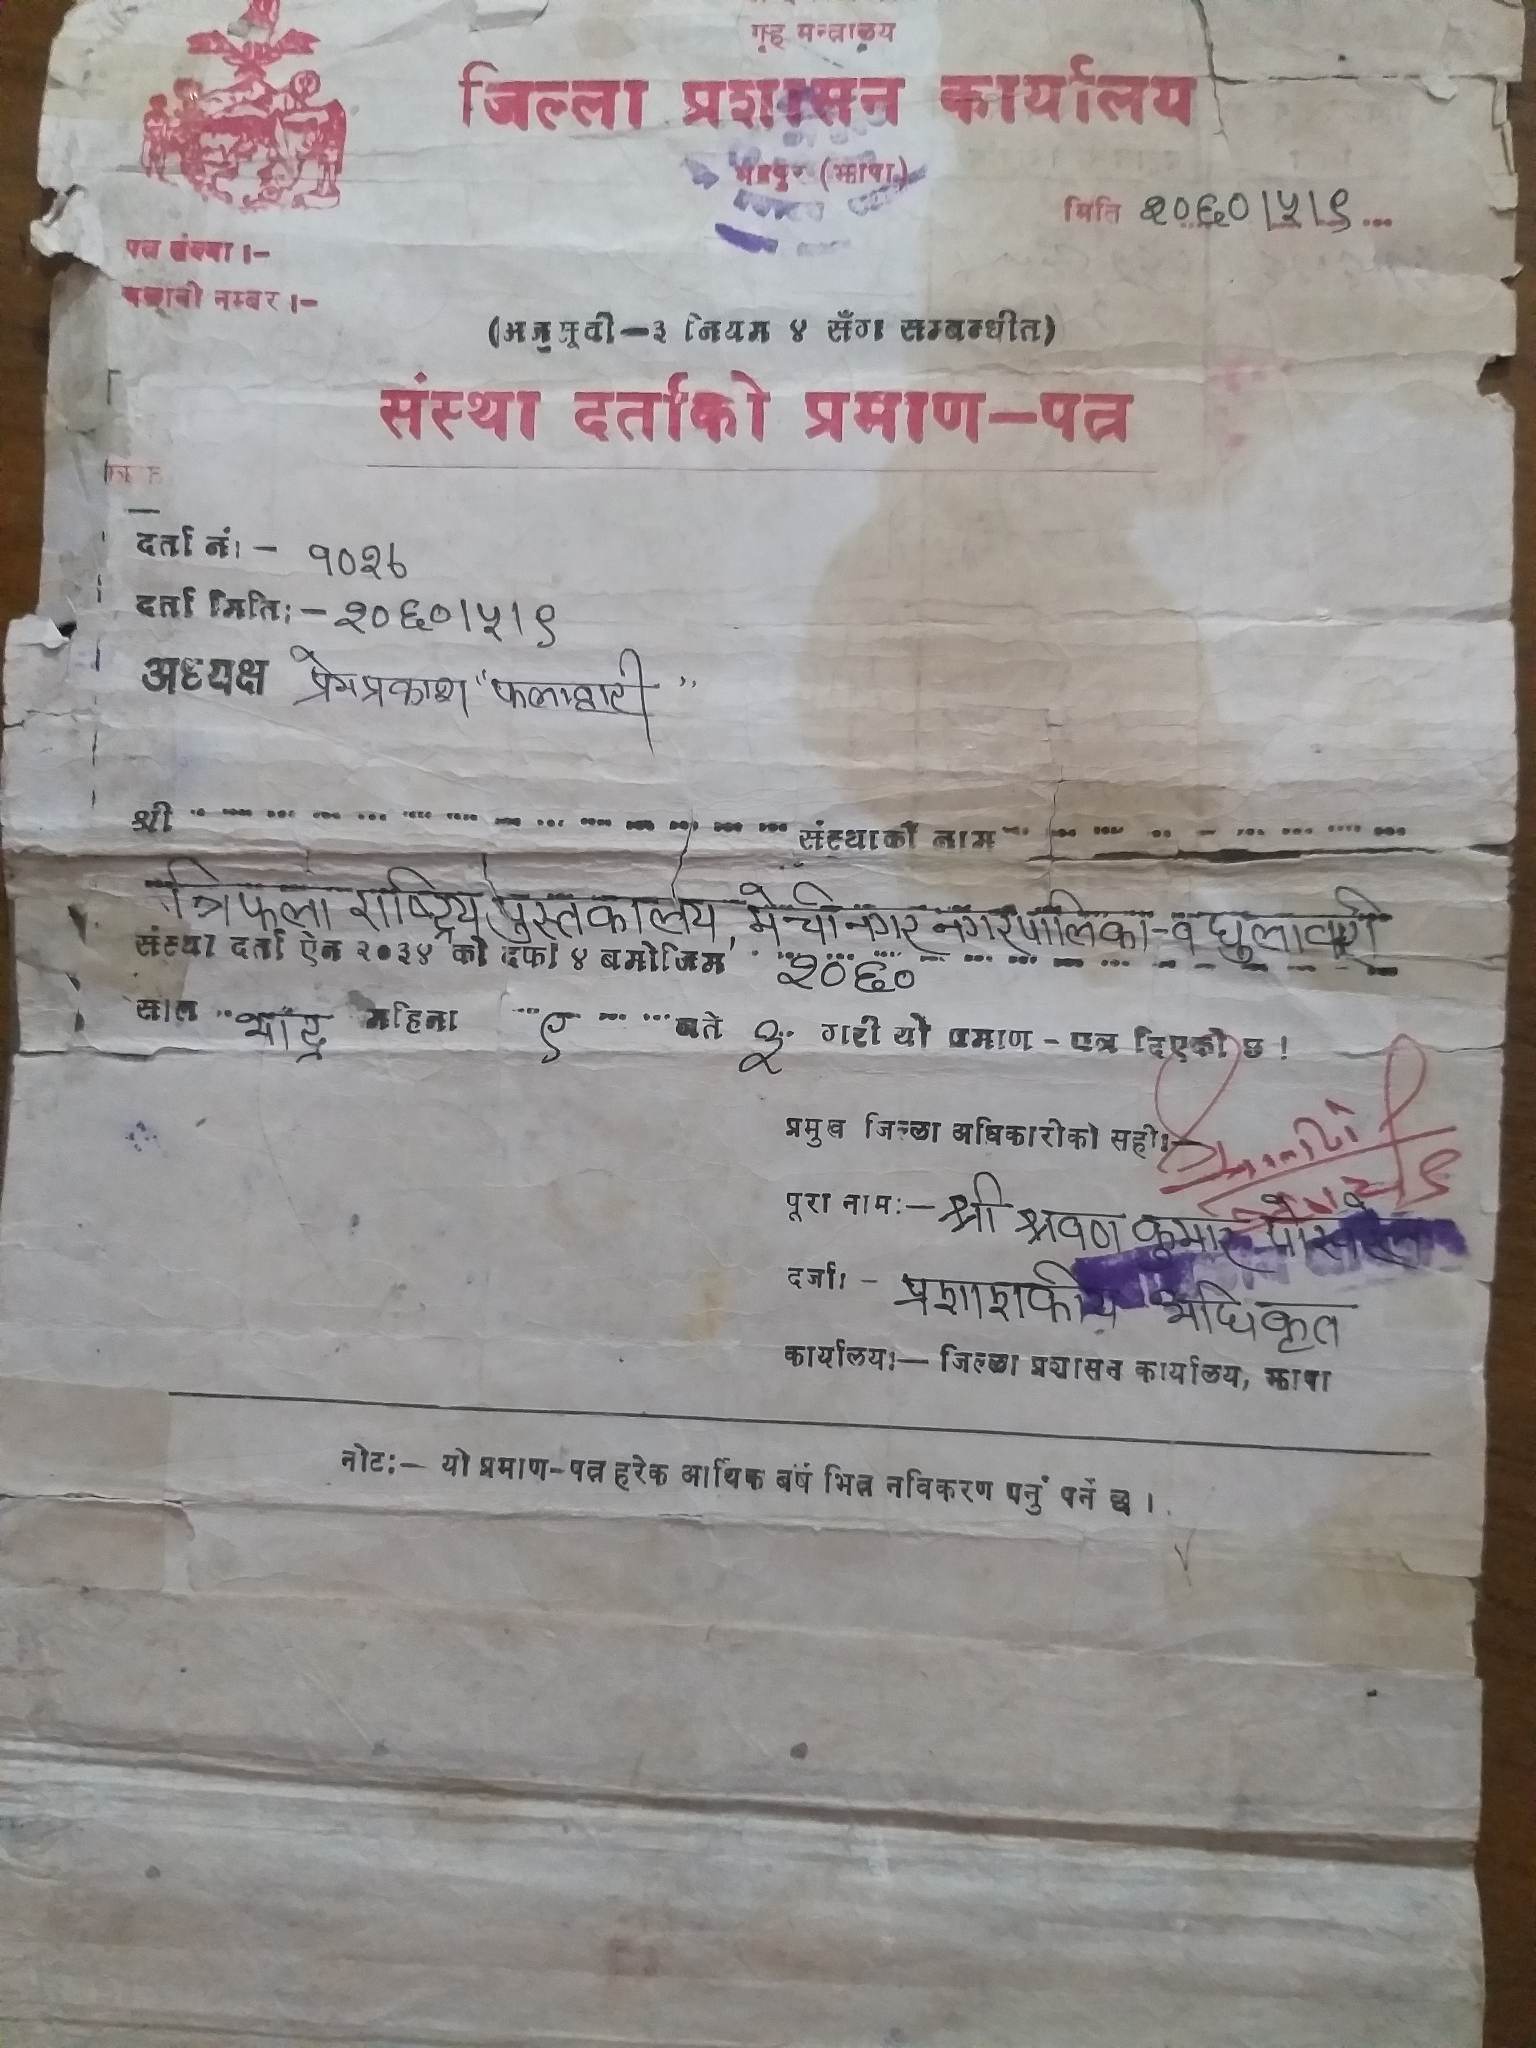 गृह मन्त्रालय
जिल्ला प्रशासन कार्यालय
भद्रपुर (झापा)
मिति २०६०।५।९
पत्र संख्या ।-
चलानी नम्बर ।-
(अनुसूची-३ नियम ४ सँग सम्बन्धीत)
संस्था दर्ताको प्रमाण-पत्र
दर्ता नं। - १०२७
दर्ता मितिः- २०६०।५।९
अध्यक्ष प्रेमप्रकाश "फलाहारी"
श्री ... संस्थाको नाम ...
त्रिफला राष्ट्रिय पुस्तकालय, मेचीनगर नगरपालिका-व धुलावारी
संस्था दर्ता ऐन २०३४ को दफा ४ बमोजिम २०६०
साल भाद्र महिना ९ गते ३ गरी यो प्रमाण - पत्र दिएको छ !
प्रमुख जिल्ला अधिकारीको सही।-
पूरा नामः- श्री श्रवण कुमार पोखरेल
दर्जा। - प्रशाशकीय अधिकृत
कार्यालय।- जिल्ला प्रशासन कार्यालय, झापा
नोटः- यो प्रमाण-पत्र हरेक आर्थिक बर्ष भित्र नविकरण पर्नु पर्ने छ ।